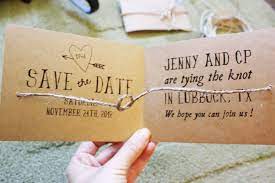 SAVE the DATE
SATURDAY
NOVEMBER 24TH, 2012
JENNY AND CP
are tying the knot
IN LUBBOCK, TX
We hope you can join us!